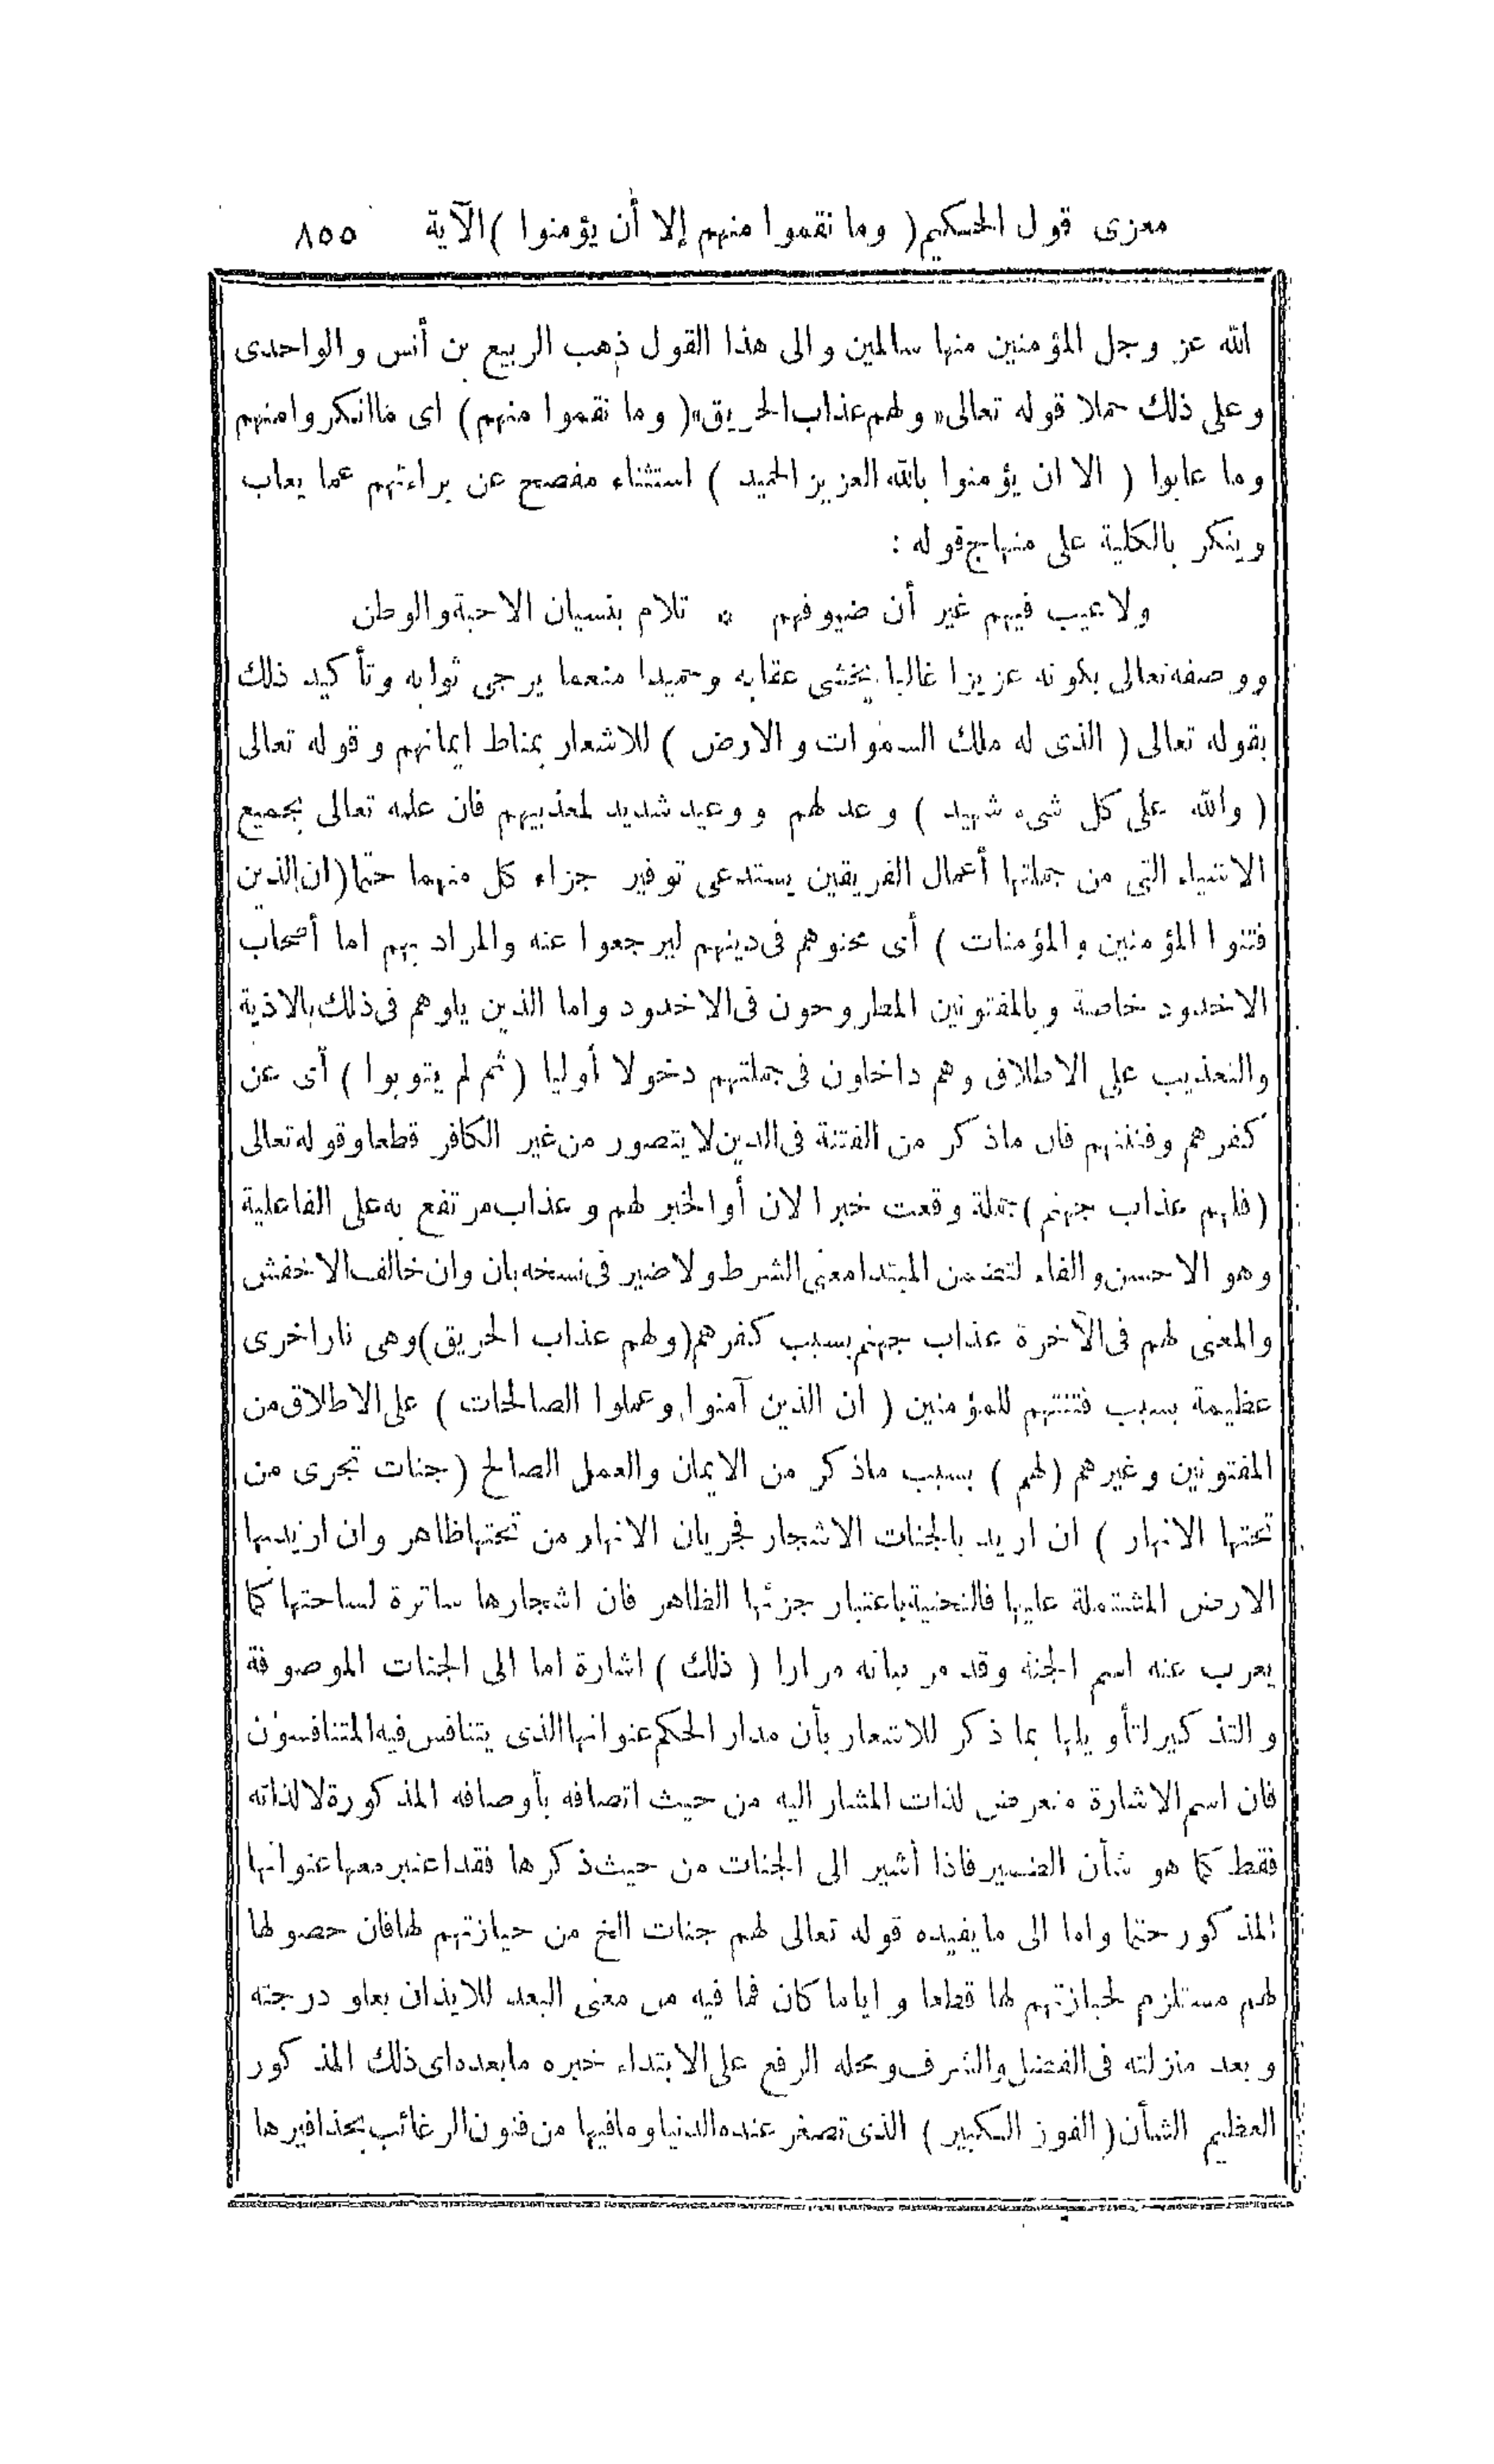 معزى قول الحكيم ( وما نقموا منهم إلا أن يؤمنوا ) الآية ٨٥٥
الله عز وجل المؤمنين منها سالمين والى هذا القول ذهب الربيع بن أنس والواحدى
وعلى ذلك حملا قوله تعالى «ولهم عذاب الحريق» ( وما نقموا منهم ) اى ما انكروا منهم
وما عابوا ( الا ان يؤمنوا بالله العزيز الحميد ) استثناء مفصح عن براءتهم عما يعاب
وينكر بالكلية على منهاج قوله :
ولا عيب فيهم غير أن ضيوفهم * تلام بنسيان الاحبة والوطن
ووصفه تعالى بكونه عزيزا غالبا يخشى عقابه وحميدا منعما يرجى ثوابه وتأكيد ذلك
بقوله تعالى ( الذى له ملك السموات والارض ) للاشعار بمناط ايمانهم وقوله تعالى
( والله على كل شىء شهيد ) وعد لهم ووعيد شديد لمعذبيهم فان علمه تعالى بجميع
الاشياء التى من جملتها أعمال الفريقين يستدعى توفير جزاء كل منهما حتما ( ان الذين
فتنوا المؤمنين والمؤمنات ) أى محنوهم فى دينهم ليرجعوا عنه والمراد بهم اما أصحاب
الاخدود خاصة وبالمفتونين المطروحون فى الاخدود واما الذين بلوهم فى ذلك بالاذية
والتعذيب على الاطلاق وهم داخلون فى جملتهم دخولا أوليا ( ثم لم يتوبوا ) أى عن
كفرهم وفتنتهم فان ماذكر من الفتنة فى الدين لا يتصور من غير الكافر قطعا وقوله تعالى
( فلهم عذاب جهنم ) جملة وقعت خبرا لان أو الخبر لهم وعذاب مرتفع به على الفاعلية
وهو الاحسن والفاء لتضمن المبتدا معنى الشرط ولا ضير فى نسخه بان وان خالف الاخفش
والمعنى لهم فى الآخرة عذاب جهنم بسبب كفرهم ( ولهم عذاب الحريق ) وهى نار اخرى
عظيمة بسبب فتنتهم للمؤمنين ( ان الذين آمنوا وعملوا الصالحات ) على الاطلاق من
المفتونين وغيرهم ( لهم ) بسبب ماذكر من الايمان والعمل الصالح ( جنات تجرى من
تحتها الانهار ) ان اريد بالجنات الاشجار فجريان الانهار من تحتها ظاهر وان اريد بها
الارض المشتملة عليها فالتحتية باعتبار جزئها الظاهر فان اشجارها ساترة لساحتها كما
يعرب عنه اسم الجنة وقد مر بيانه مرارا ( ذلك ) اشارة اما الى الجنات الموصوفة
والتذكير لتأويلها بما ذكر للاشعار بأن مدار الحكم عنوانها الذى يتنافس فيه المتنافسون
فان اسم الاشارة متعرض لذات المشار اليه من حيث اتصافه بأوصافه المذكورة لا لذاته
فقط كما هو شأن الضمير فاذا أشير الى الجنات من حيث ذكرها فقد اعتبر معها عنوانها
المذكور حتما واما الى ما يفيده قوله تعالى لهم جنات الخ من حيازتهم لها فان حصولها
لهم مستلزم لحيازتهم لها قطعا واياما كان فما فيه من معنى البعد للايذان بعلو درجته
وبعد منزلته فى الفضل والشرف ومحله الرفع على الابتداء خبره ما بعده اى ذلك المذكور
العظيم الشأن ( الفوز الكبير ) الذى تصغر عنده الدنيا وما فيها من فنون الرغائب بحذافيرها